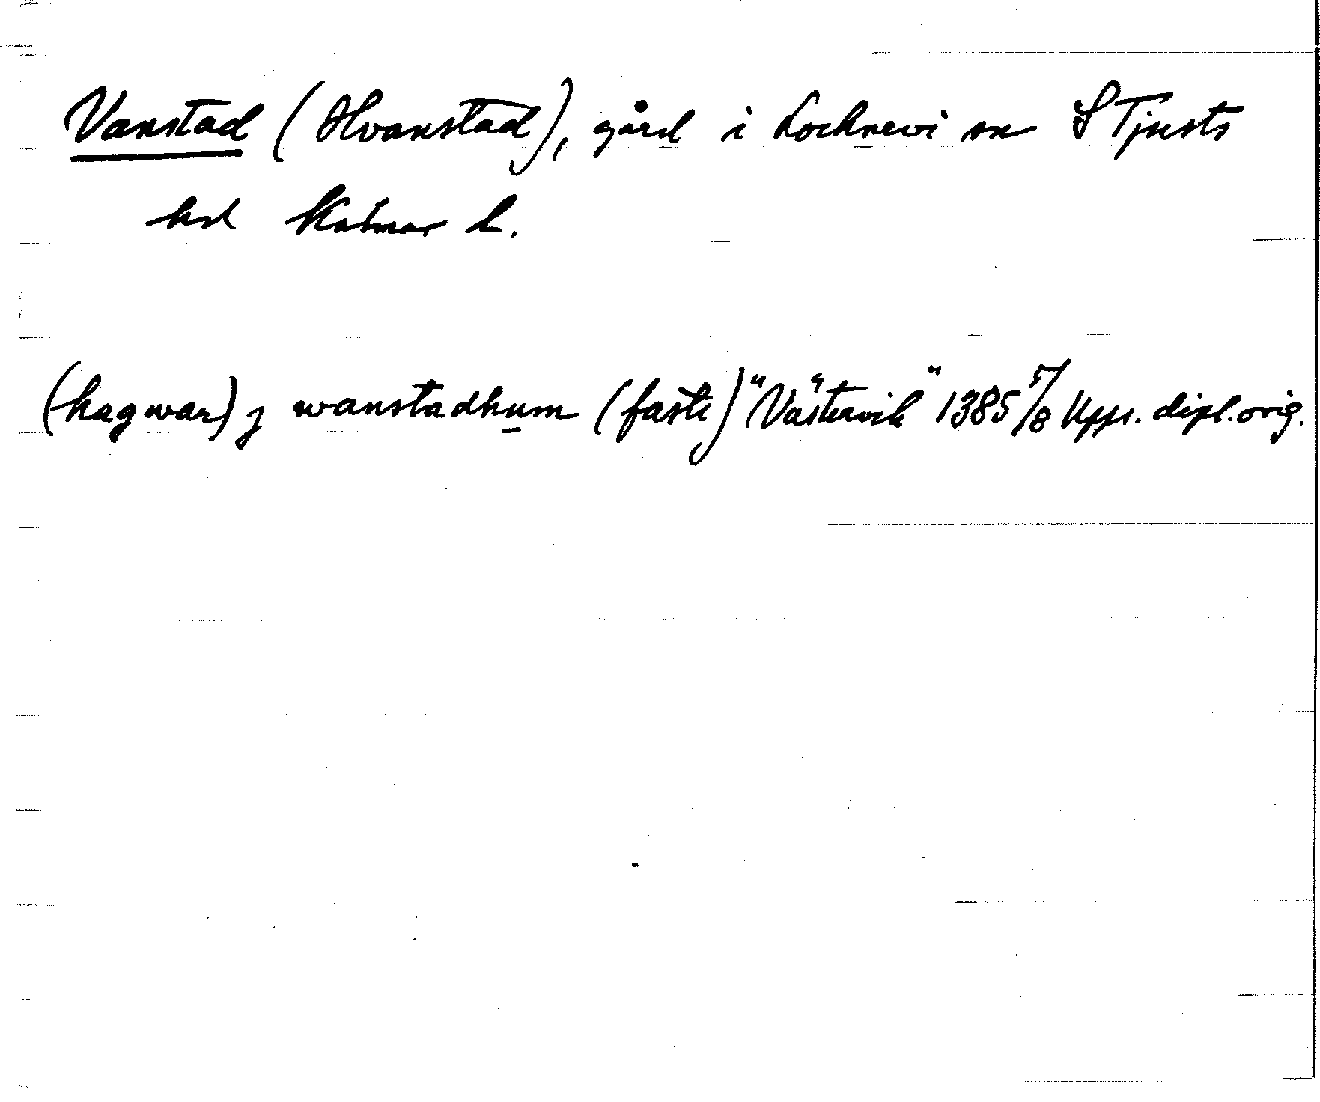 Vanstad (Hvanstad), gård i Locknevi sn S Tjusts
hd Kalmar l.
(hagwar) j wanstadhum (faste) "Västervik" 1385 7/8 Upps. dipl. orig.